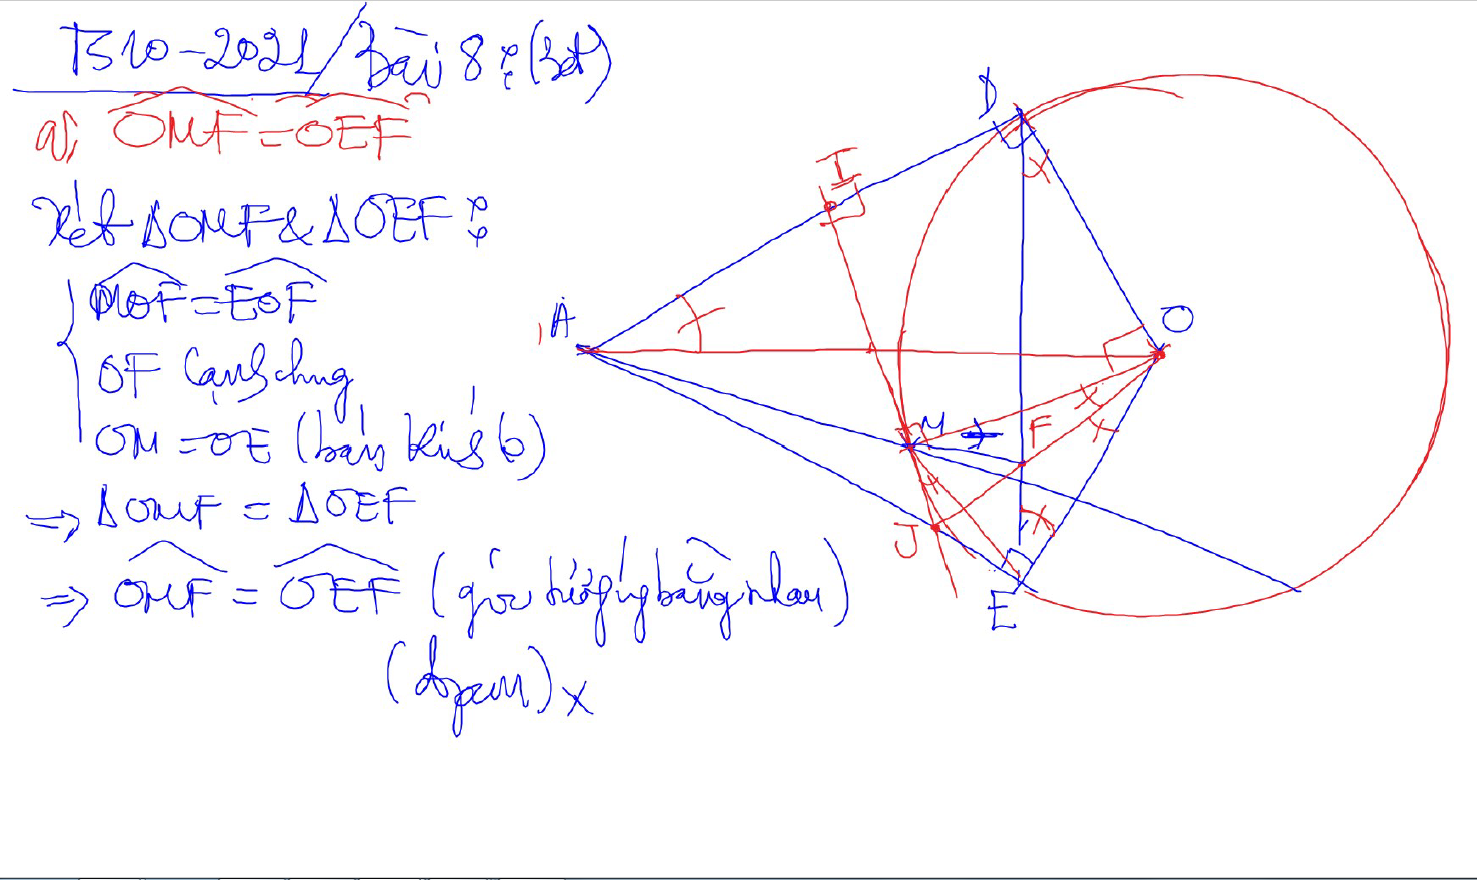 TS10-2021/Bài 8: (3đ)
a); OMF = OEF
Xét ΔOMF & ΔOEF:
MOF = EOF
OF cạnh chung
OM = OE (bán kính (O))
=> ΔOMF = ΔOEF
=> OMF = OEF (góc tương ứng bằng nhau)
(đpcm) x
D
I
x
A
O
x
M
F
x
x
J
E